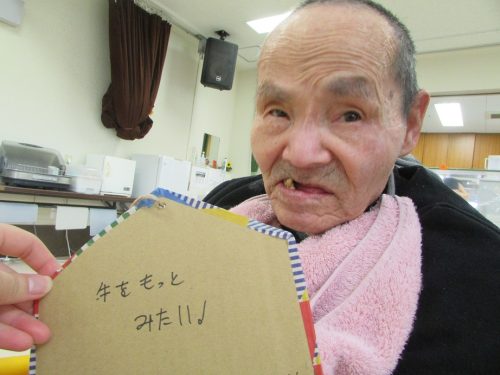 牛をもっと
みたい♩